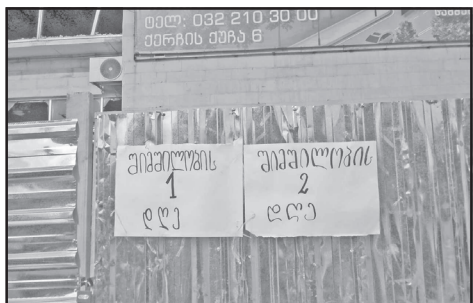 ტელ: 032 210 30 00
ქერჩის ქუჩა 6
შიმშილობის
1
დღე
შიმშილობის
2
დღე